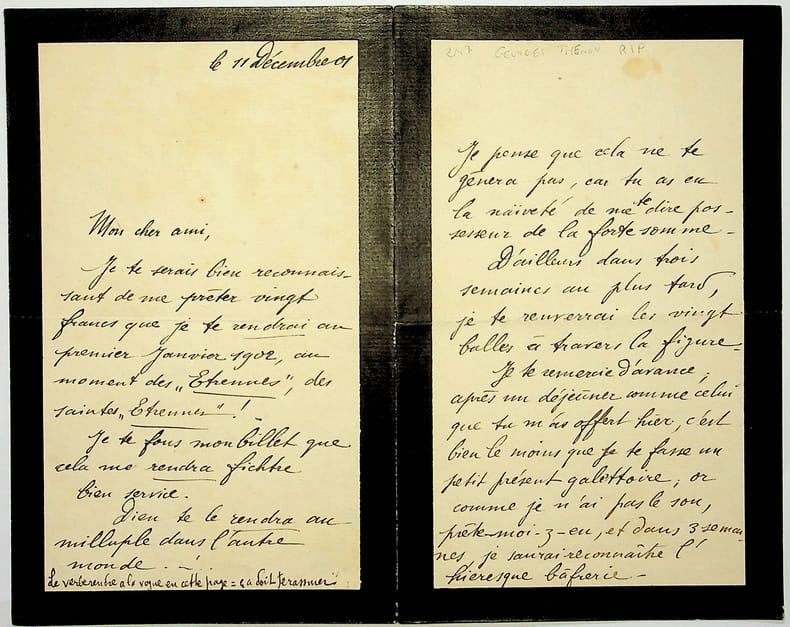 le 11 Décembre 01
Mon cher ami,
Je te serais bien reconnais-
sant de me prêter vingt
francs que je te rendrai au
premier Janvier 1902, au
moment des „Etrennes", des
saintes „Etrennes" !
Je te fous mon billet que
cela me rendra fichtre
bien service.
Dieu te le rendra au
milluple dans l'autre
monde . _ . .
Le verbe rendre a la vogue en cette page = ça doit t'
2017 GEORGES THENON RIP
Je pense que cela ne te
gênera pas, car tu as eu
la naïveté de me te dire pos-
sesseur de la forte somme -
D'ailleurs dans trois
semaines au plus tard,
je te renverrai les vingt
balles à travers la figure -
Je te remercie d'avance ;
après un déjeûner comme celui
que tu m'as offert hier, c'est
bien le moins que je te fasse un
petit présent galettoire ; or
comme je n'ai pas le sou,
prête-moi-z-en, et dans 3 semai-
nes, je saurai reconnaître l'
hieresque bâfrerie -